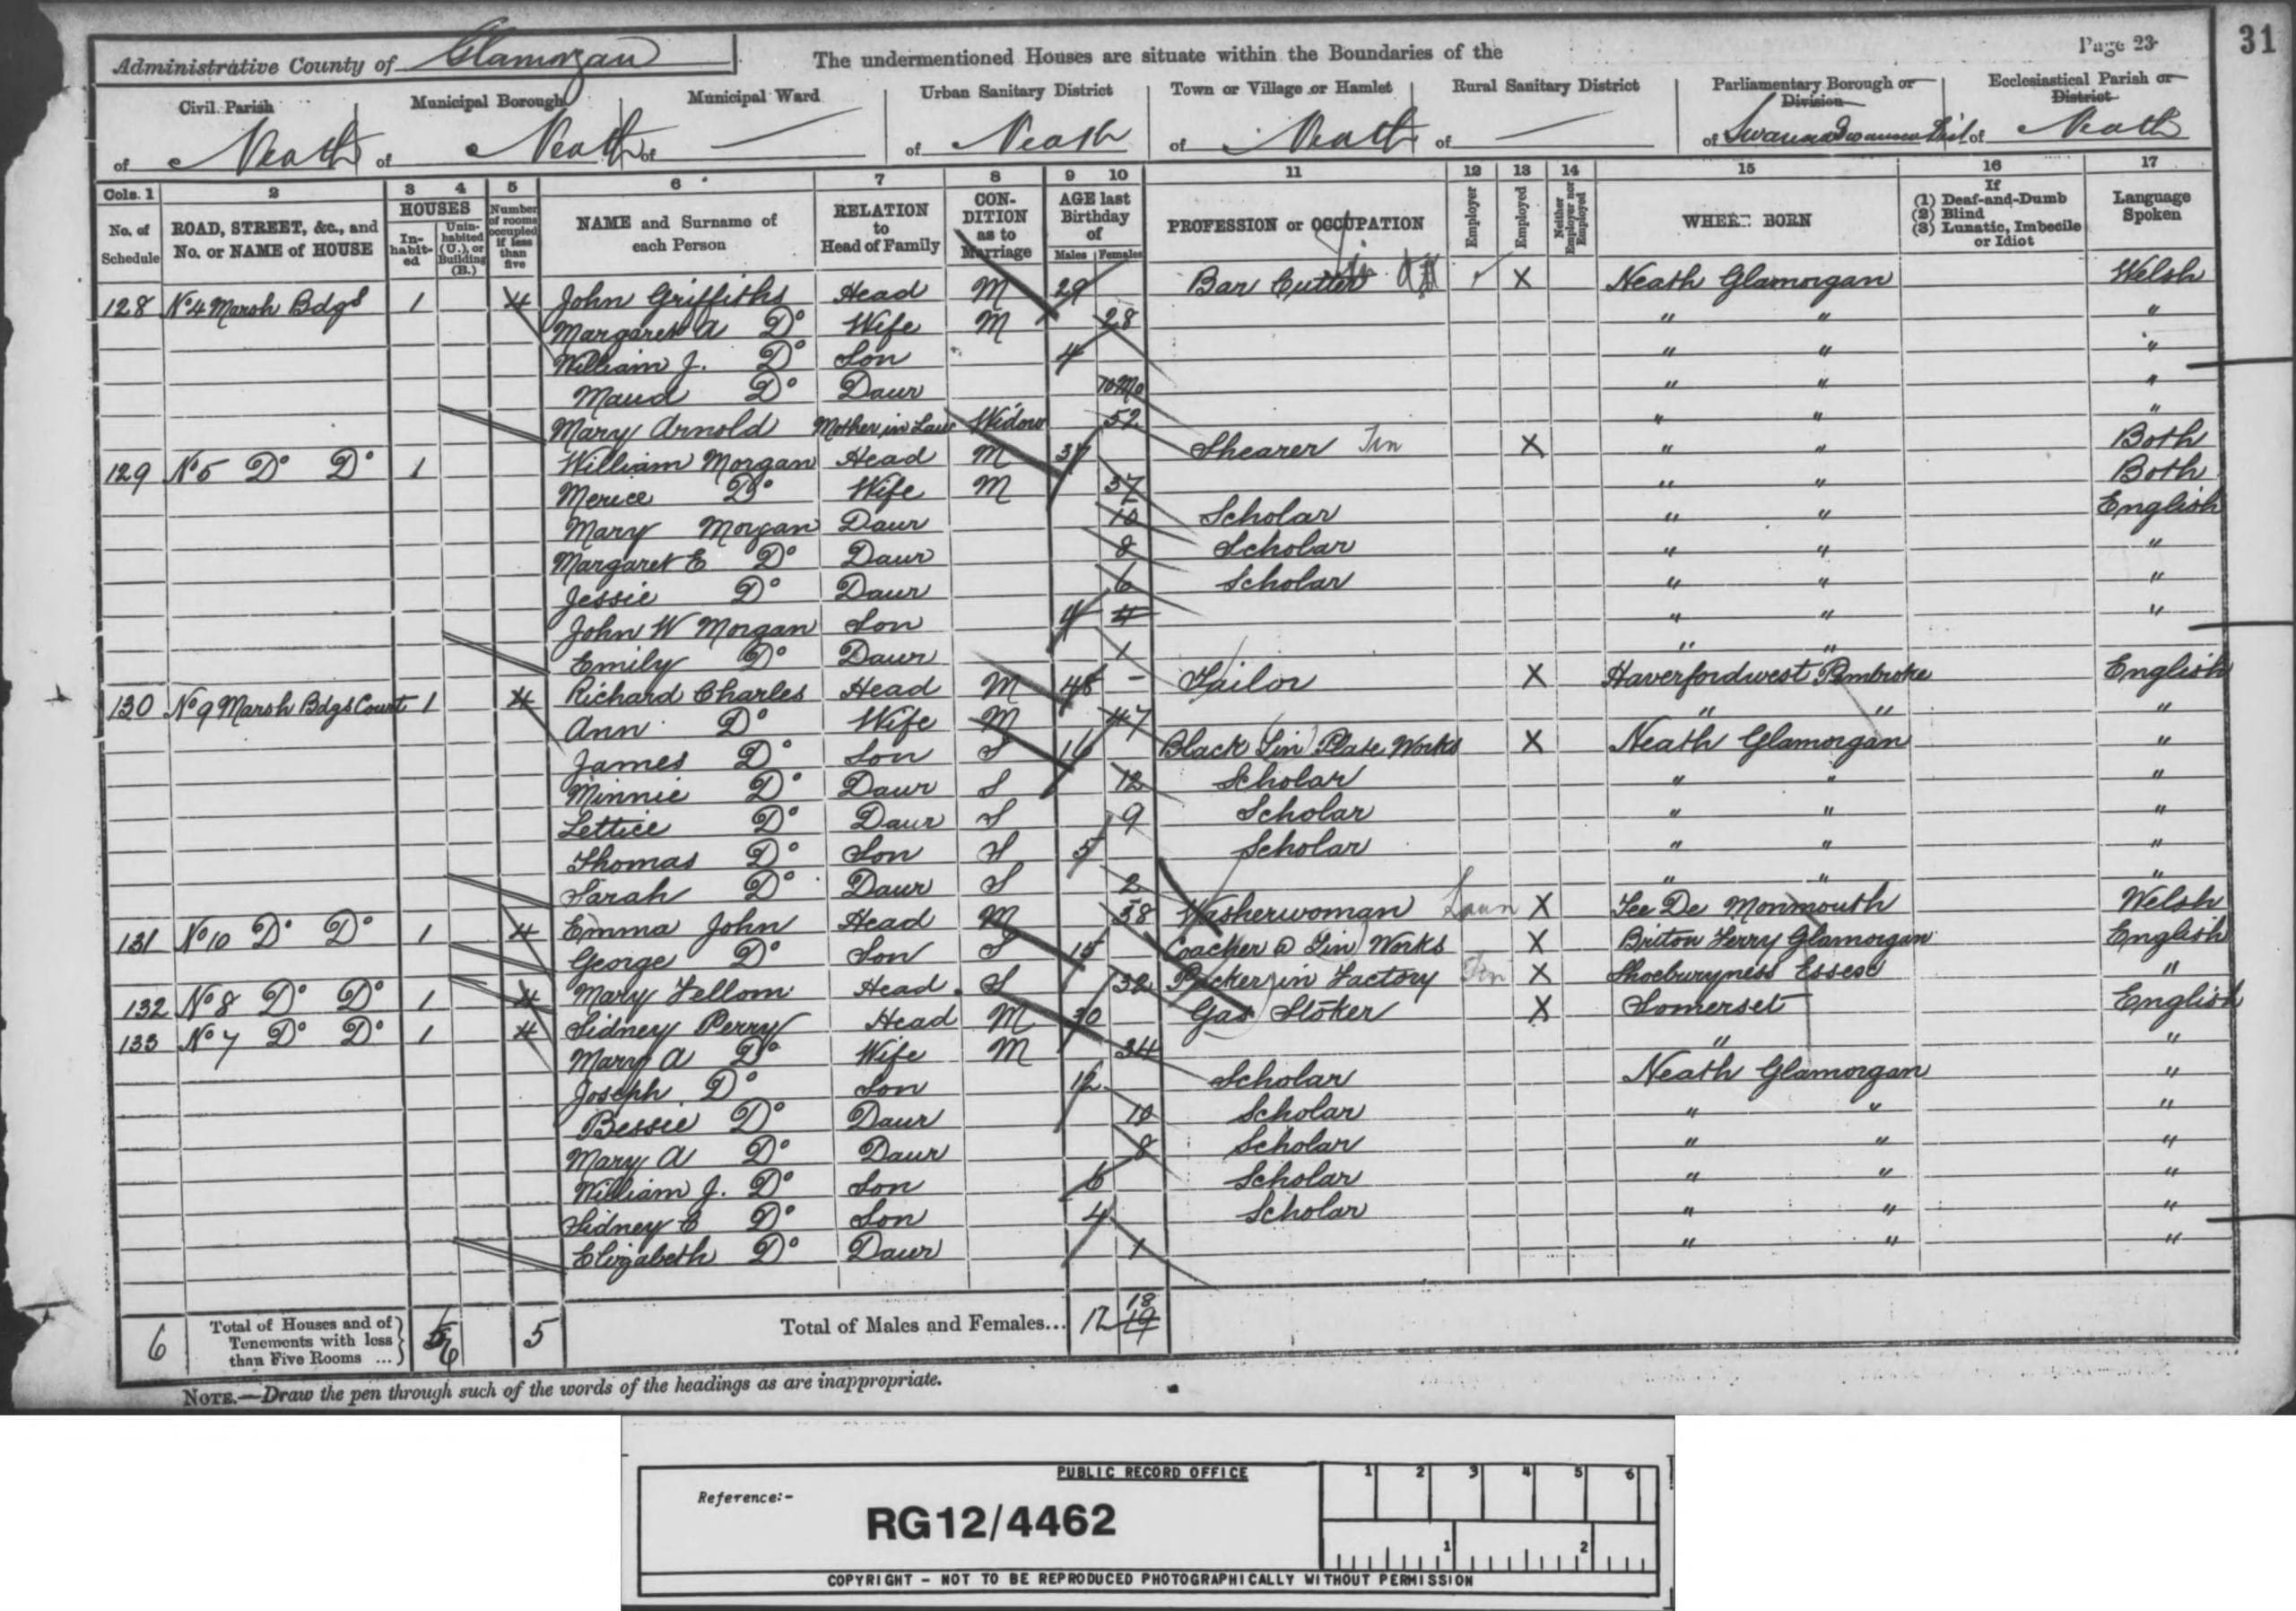 Page 23
31
Administrative County of Glamorgan
The undermentioned Houses are situate within the Boundaries of the
Civil Parish
Municipal Borough
Municipal Ward
Urban Sanitary District
Town or Village or Hamlet
Rural Sanitary District
Parliamentary Borough or Division
Ecclesiastical Parish or District
of Neath
of Neath
of —
of Neath
of Neath
of —
of Swansea
of Neath
Cols. 1 2 3 4 5 6 7 8 9 10 11 12 13 14 15 16 17
No. of Schedule
ROAD, STREET, &c., and No. or NAME of HOUSE
HOUSES
Inhabited
Uninhabited (U.), or Building (B.)
Number of rooms occupied if less than five
NAME and Surname of each Person
RELATION to Head of Family
CONDITION as to Marriage
AGE last Birthday of
Males Females
PROFESSION or OCCUPATION
Employer
Employed
Neither Employer nor Employed
WHERE BORN
If
(1) Deaf-and-Dumb
(2) Blind
(3) Lunatic, Imbecile or Idiot
Language Spoken
128 No 4 Marsh Bdgs 1 4 John Griffiths Head M 29 Bar Cutter Tin X Neath Glamorgan Welsh
Margaret A Do Wife M 28 " " "
William J. Do Son 4 " " "
Maud Do Daur 10 Mo " " "
Mary Arnold Mother in Law Widow 52 " " "
129 No 5 Do Do 1 William Morgan Head M 37 Shearer Tin X " " Both
Merice Do Wife M 37 " " Both
Mary Morgan Daur 10 Scholar " " English
Margaret E Do Daur 8 Scholar " " "
Jessie Do Daur 6 Scholar " " "
John W Morgan Son 4 4 " " "
Emily Do Daur 1 " "
130 No 9 Marsh Bdgs Court 1 4 Richard Charles Head M 48 - Tailor X Haverfordwest Pembroke English
Ann Do Wife M 47 " " "
James Do Son S 16 Black Tin Plate Works X Neath Glamorgan "
Minnie Do Daur S 12 Scholar " " "
Lettice Do Daur S 9 Scholar " " "
Thomas Do Son S 5 Scholar " " "
Sarah Do Daur S 2 " " "
131 No 10 Do Do 1 4 Emma John Head M 58 Washerwoman X Tee De Monmouth Welsh
George Do Son S 15 Coacher @ Tin Works X Briton Ferry Glamorgan English
132 No 8 Do Do 1 4 Mary Fellom Head S 32 Packer in Factory Tin X Shoeburyness Essex "
133 No 7 Do Do 1 4 Sidney Perry Head M 30 Gas Stoker X Somerset English
Mary A Do Wife M 34 " "
Joseph Do Son 12 Scholar Neath Glamorgan "
Bessie Do Daur 10 Scholar " " "
Mary A Do Daur 8 Scholar " " "
William J. Do Son 6 Scholar " " "
Sidney E Do Son 4 Scholar " " "
Elizabeth Do Daur 1 " " "
6 Total of Houses and of Tenements with less than Five Rooms ... 6 5 Total of Males and Females... 12 18 19
NOTE.—Draw the pen through such of the words of the headings as are inappropriate.
PUBLIC RECORD OFFICE
Reference:-
RG12/4462
1 2 3 4 5 6
1 2
COPYRIGHT - NOT TO BE REPRODUCED PHOTOGRAPHICALLY WITHOUT PERMISSION